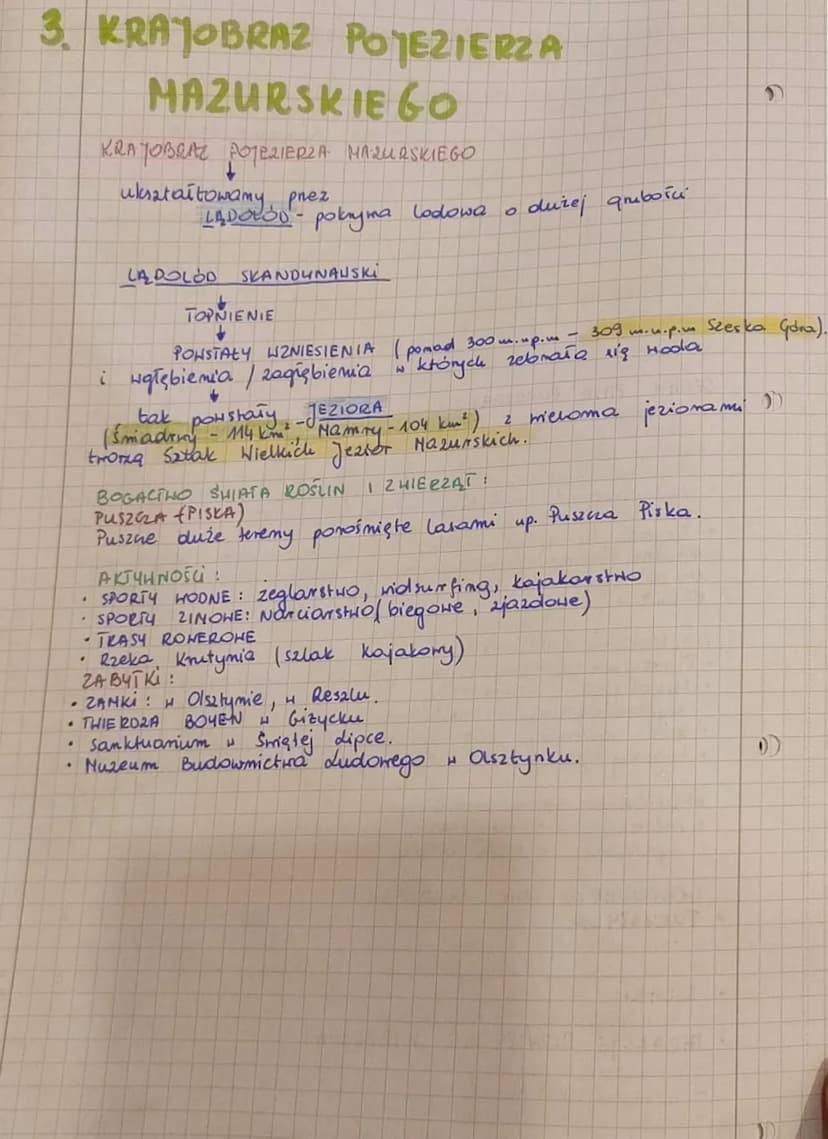 3. KRAJOBRAZ POJEZIERZA
MAZURSKIEGO
KRAJOBRAZ POJEZIERZA MAZURSKIEGO
↓
ukształtowany przez
LĄDOLÓD - pokrywa lodowa o dużej grubości
LĄDOLÓD SKANDYNAWSKI
↓
TOPNIENIE
↓
POWSTAŁY WZNIESIENIA (ponad 300 m.n.p.m - 309 m.n.p.m Szeska Góra).
i wgłębienia / zagłębienia w których zebrała się woda
↓
tak powstały JEZIORA
(Śniadrwy - 114 km², Mamry - 104 km²) z wieloma jeziorami
tworzą Szlak Wielkich Jezior Mazurskich.
BOGACTWO ŚWIATA ROŚLIN I ZWIERZĄT:
PUSZCZA (PISKA)
Puszcze duże tereny porośnięte lasami np. Puszcza Piska.
AKTYWNOŚCI:
• SPORTY WODNE: żeglarstwo, widsurfing, kajakarstwo
• SPORTY ZIMOWE: Narciarstwo (biegowe, zjazdowe)
• TRASY ROWEROWE
• Rzeka Krutynia (szlak kajakowy)
ZABYTKI:
• ZAMKI: w Olsztynie, w Reszlu.
• TWIERDZA BOYEN w Giżycku
• Sanktuarium w Świętej Lipce.
• Muzeum Budownictwa Ludowego w Olsztynku.